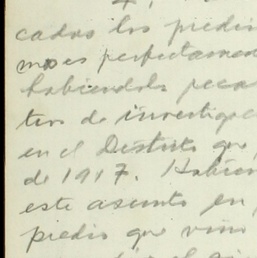 cados los piedri
mo es perfectamen
habiendole peca
tes de investigac
en el Destrito que
de 1917. Habien
este asunto en
piedri que vino